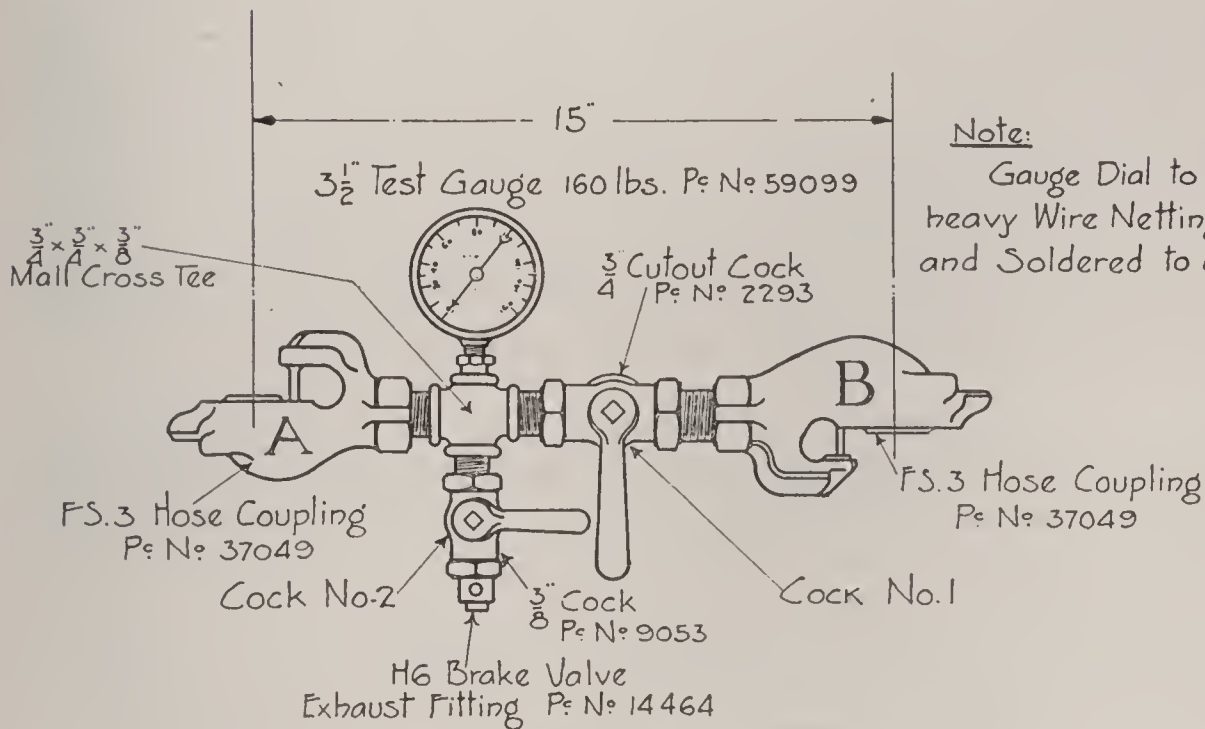 15"
Note:
Gauge Dial to
heavy Wire Netting
and Soldered to
3 1/2" Test Gauge 160 lbs. Pc No 59099
3/4" x 3/4" x 3/8"
Mall Cross Tee
3/4" Cutout Cock
Pc No 2293
A
B
FS.3 Hose Coupling
Pc No 37049
FS.3 Hose Coupling
Pc No 37049
Cock No.2
3/8" Cock
Pc No 9053
Cock No.1
H6 Brake Valve
Exhaust Fitting Pc No 14464